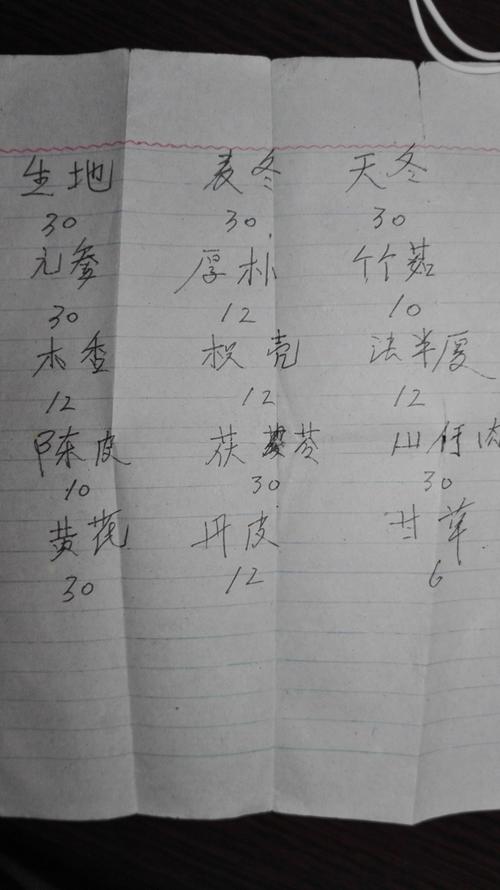 生地 麦冬 天冬
30 30 30
元参 厚朴 竹茹
30 12 10
木香 枳壳 法半夏
12 12 12
陈皮 茯苓 山萸肉
10 30 30
黄芪 丹皮 甘草
30 12 6